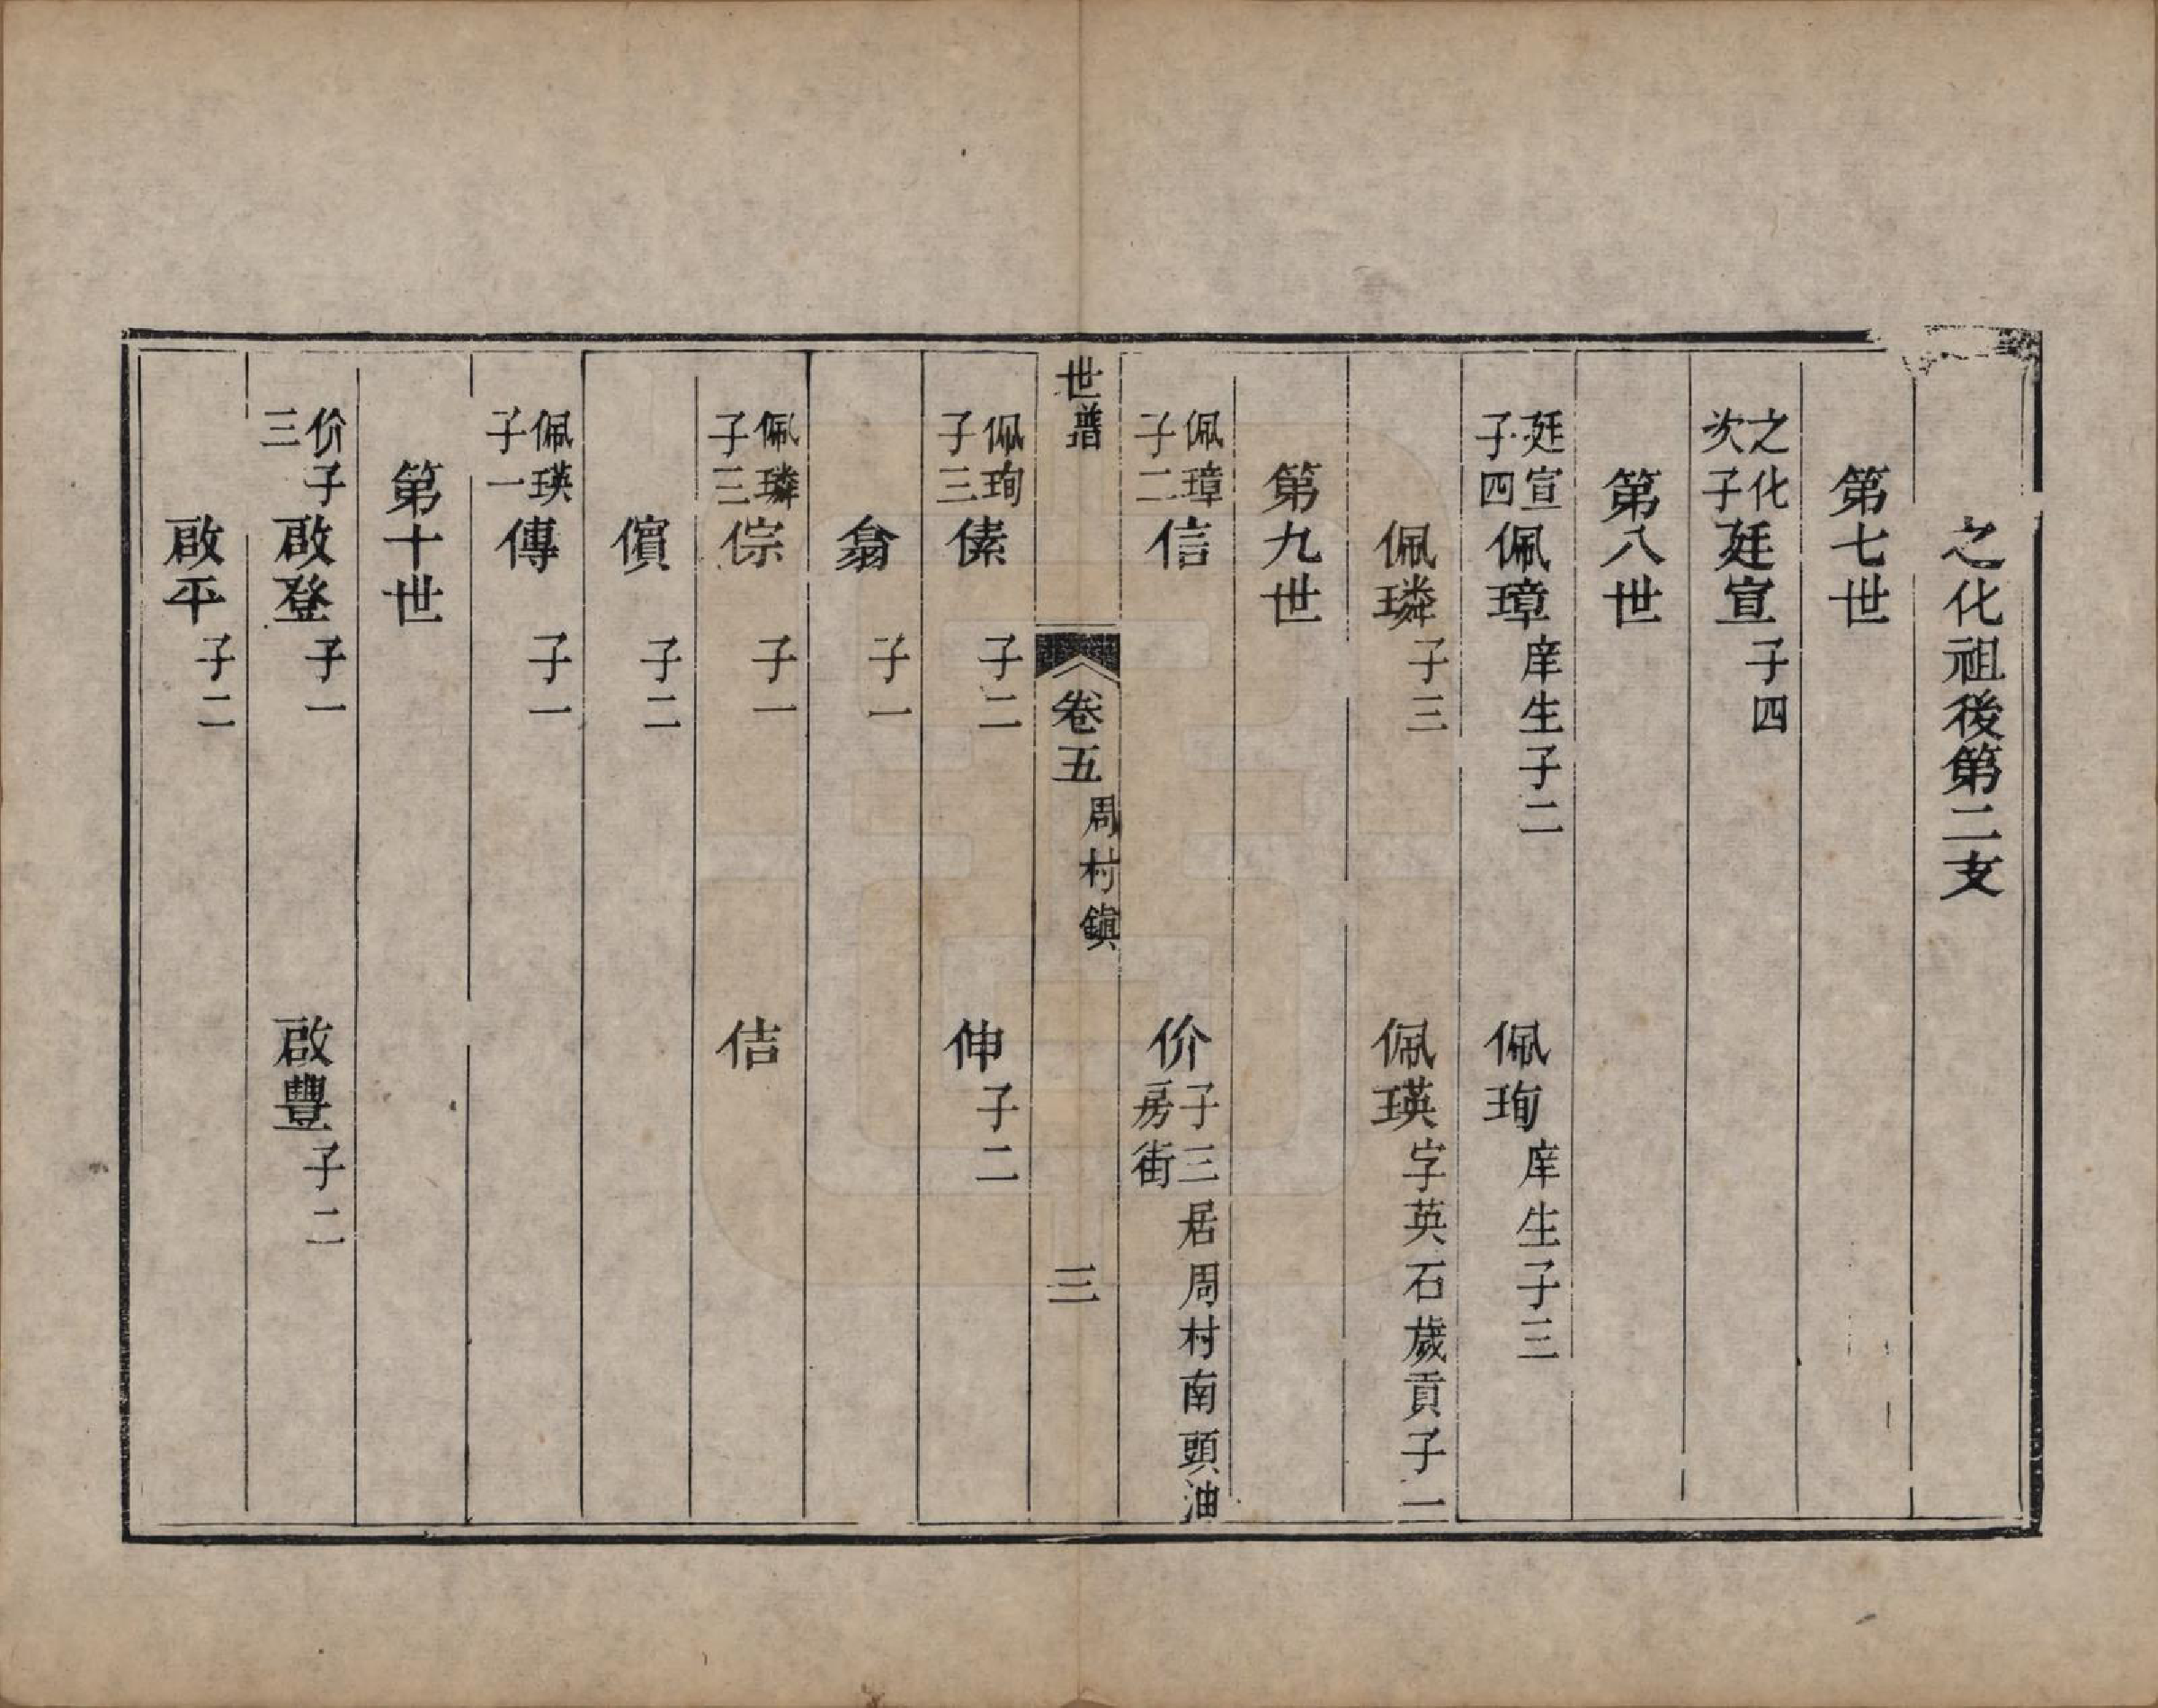 之化祖後第二支
第七世
之化次子廷宣子四
第八世
廷宣子四佩璋庠生子二　佩珣庠生子三
佩璘子三　佩瑛字英石歲貢子一
第九世
佩璋子二信　价子三居周村南頭油房街
世譜　卷五　周村鎮　三
佩珣子三傃子二　伸子二
翕子一
佩璘子三倧子一　佶
儐子二
佩瑛子一傳子一
第十世
价子三啟登子一　啟豐子二
啟平子二